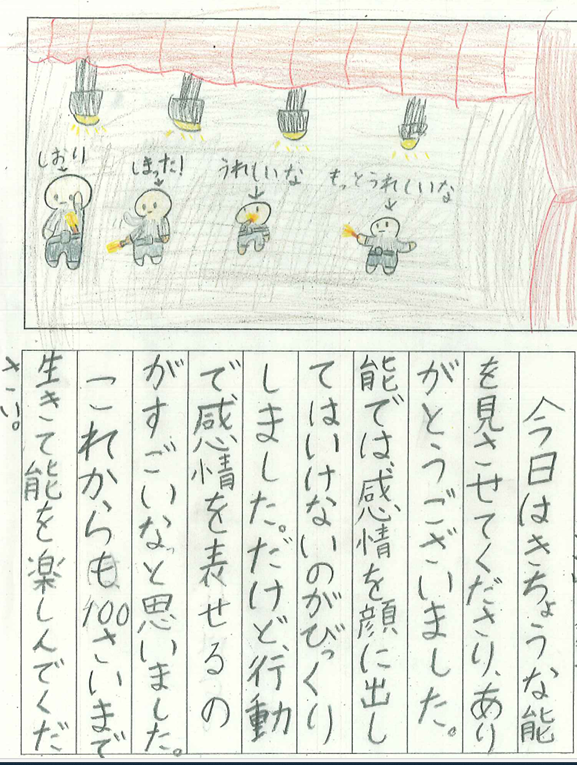 しおり
しまった!
うれしいな
もっとうれしいな
今日はきちょうな能
を見させてくださり、あり
がとうございました。
能では、感情を顔に出し
てはいけないのがびっくり
しました。だけど、行動
で感情を表せるの
がすごいなと思いました。
これからも100さいまで
生きて能を楽しんでくだ
さい。